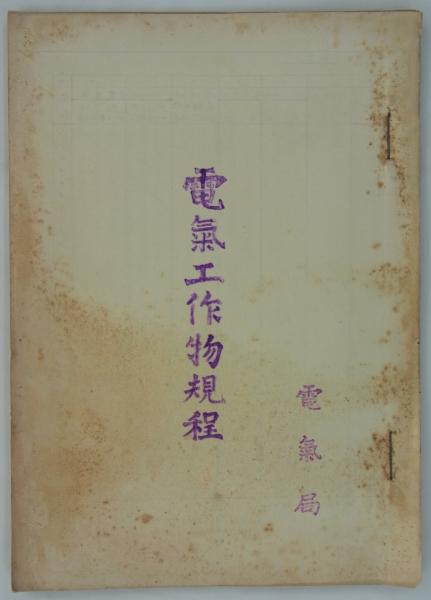 電氣工作物規程
電氣局